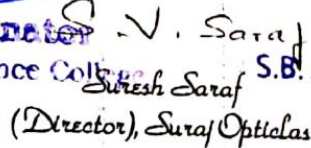 S.V. Saraf
S.B.
nce College
Suresh Saraf
(Director), Suraj Opticlas